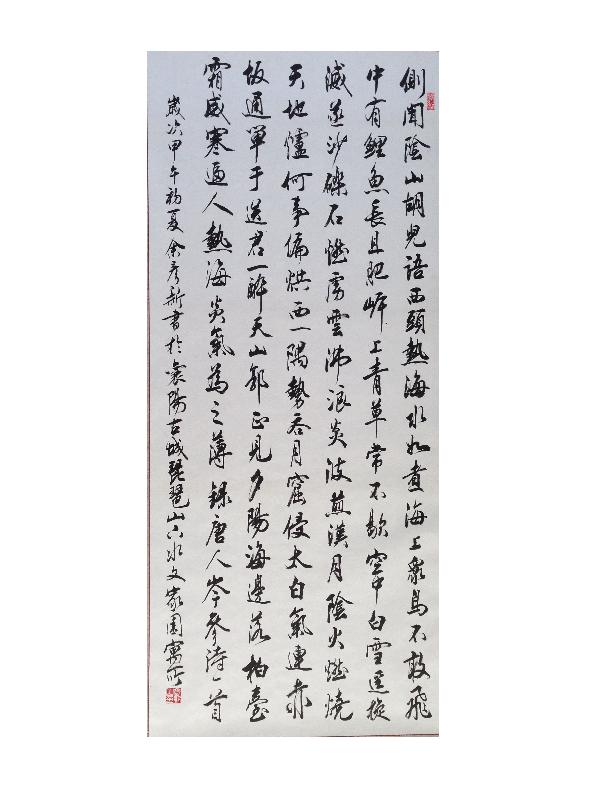 側聞陰山胡兒語西頭熱海水如煮海上衆鳥不敢飛
中有鯉魚長且肥岸上青草常不歇空中白雪遥旋
滅蒸沙礫石燃虜雲沸浪炎波煎漢月陰火燃燒
天地爐何事偏烘西一隅勢吞月窟侵太白氣連赤
坂通單于送君一醉天山郭正見夕陽海邊落柏臺
霜威寒逼人熱海炎氣為之薄錄唐人岑參詩一首
歲次甲午初夏余彦新書於襄陽古城琵琶山下水文家園寓所